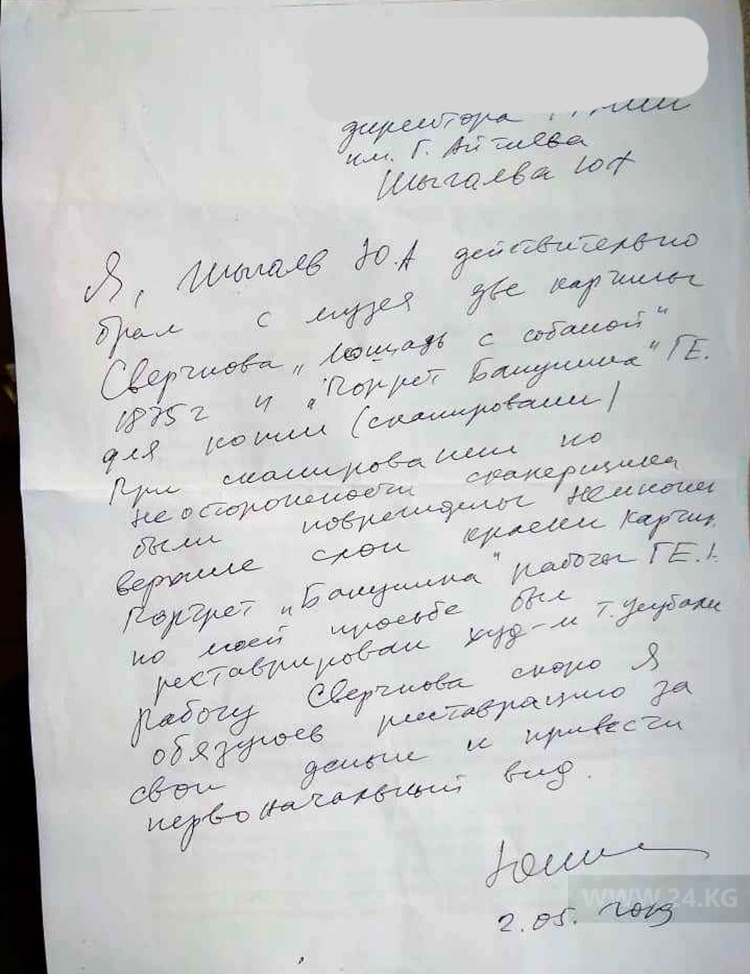 директора
им. Г. Айтиева
Шыгаева Ю А
Я, Шыгаев Ю.А действительно
брал с музея две картины
Сверчкова „Лошадь с собакой"
1875 г и „Портрет Бакунина" ГЕ.
для копии (сканировании)
При сканировании по
неосторожности сканерщика
были повреждены немного
верхние слои краски картин.
Портрет „Бакунина" работы ГЕ.
по моей просьбе был
реставрирован худ-м Т.
Работу Сверчкова скоро Я
обязуюсь реставрацию за
свои деньги и привести
первоначальный вид.
2.05. 2019
WWW.24.KG